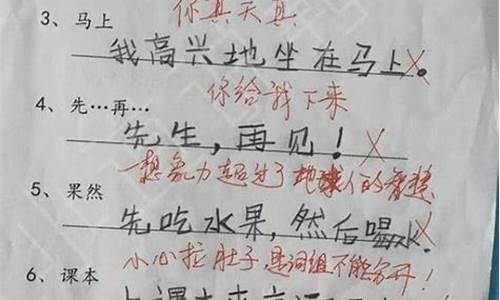 你真天真
3、马上
我高兴地坐在马上。
你给我下来
4、先…再…
先生,再见!
想象力超过了地球人的智慧
5、果然
先吃水果,然后喝水.
小心拉肚子,是词组不能分开!
6、课本
上课本来应